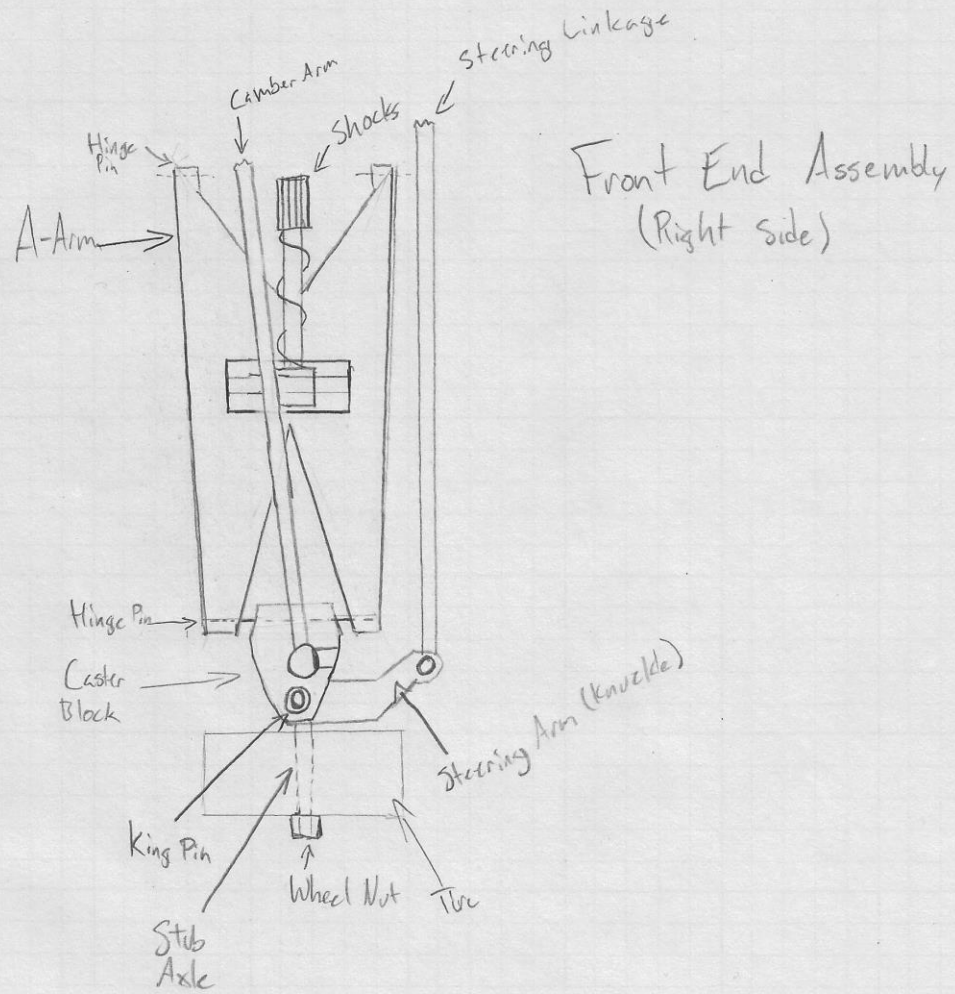 Steering Linkage
Camber Arm
Shocks
Hinge
Pin
Front End Assembly
(Right Side)
A-Arm
Hinge Pin
Caster
Block
Steering Arm (Knuckle)
King Pin
Wheel Nut
Tire
Stub
Axle